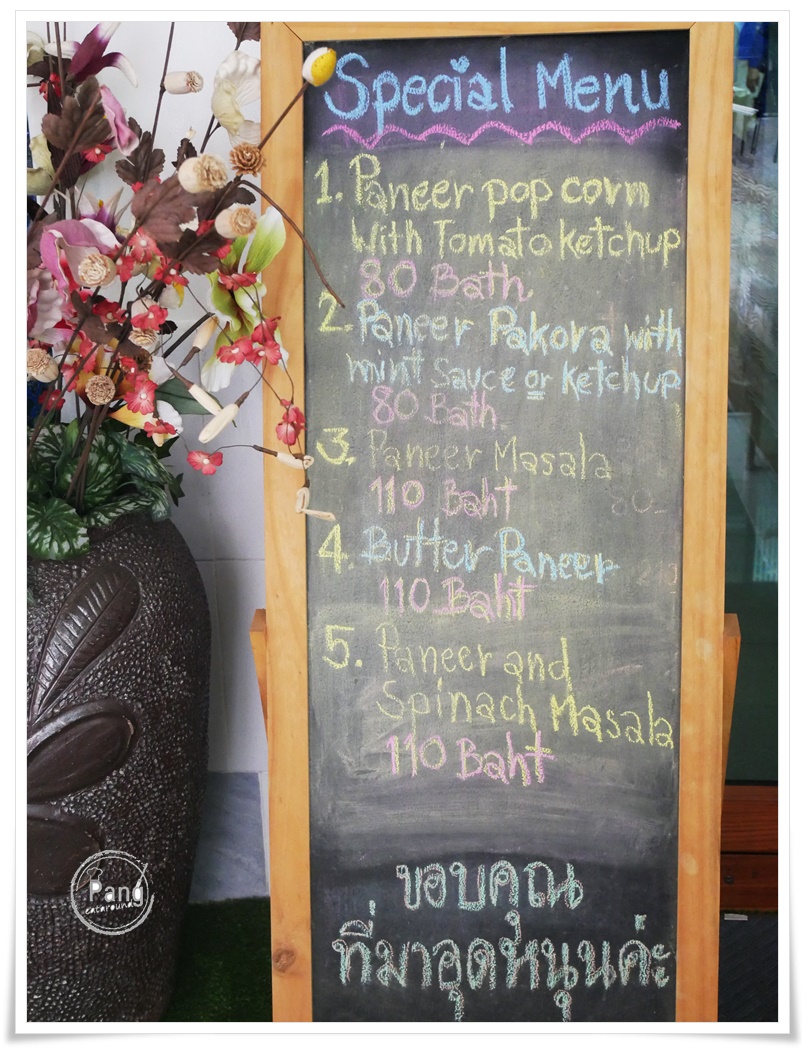 Special Menu
1. Paneer pop corn
With Tomato ketchup
80 Bath
2. Paneer Pakora with
mint Sauce or ketchup
80 Bath
3. Paneer Masala
110 Baht
80
4. Butter Paneer
110 Baht
5. Paneer and
Spinach Masala
110 Baht
ขอบคุณ
ที่มาอุดหนุนค่ะ
Pang
eataround